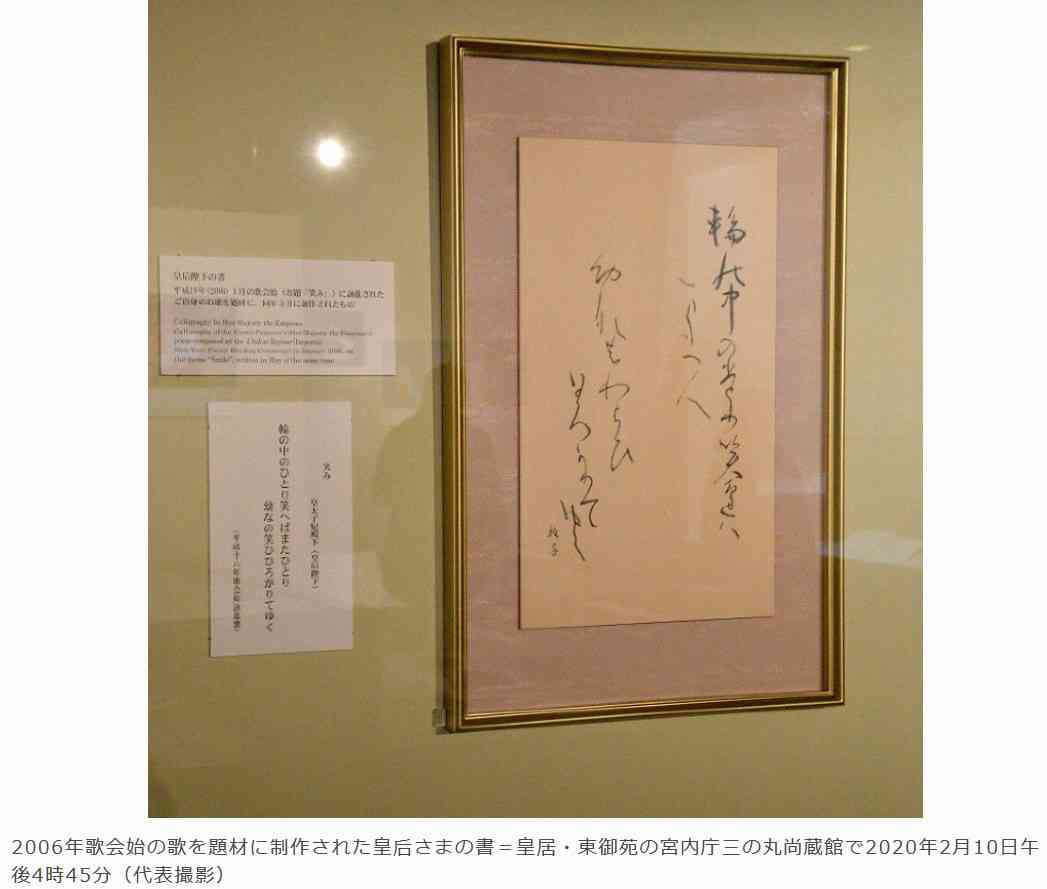 皇后陛下の書
平成18年（2006）1月の歌会始（お題「笑み」）に詠進された
ご自身のお歌を題材に、同年5月に制作されたもの
Calligraphy by Her Majesty the Empress
Calligraphy of the Crown Princess's (Her Majesty the Empress's)
poem composed at the Utakai Hajime (Imperial
New Year's Poetry Reading Ceremony) in January 2006, on
the theme "Smile", written in May of the same year
笑み
皇太子妃殿下（皇后陛下）
輪の中のひとり笑へばまたひとり
幼なの笑ひひろがりてゆく
（平成十八年歌会始詠進歌）
雅子
2006年歌会始の歌を題材に制作された皇后さまの書＝皇居・東御苑の宮内庁三の丸尚蔵館で2020年2月10日午
後4時45分（代表撮影）